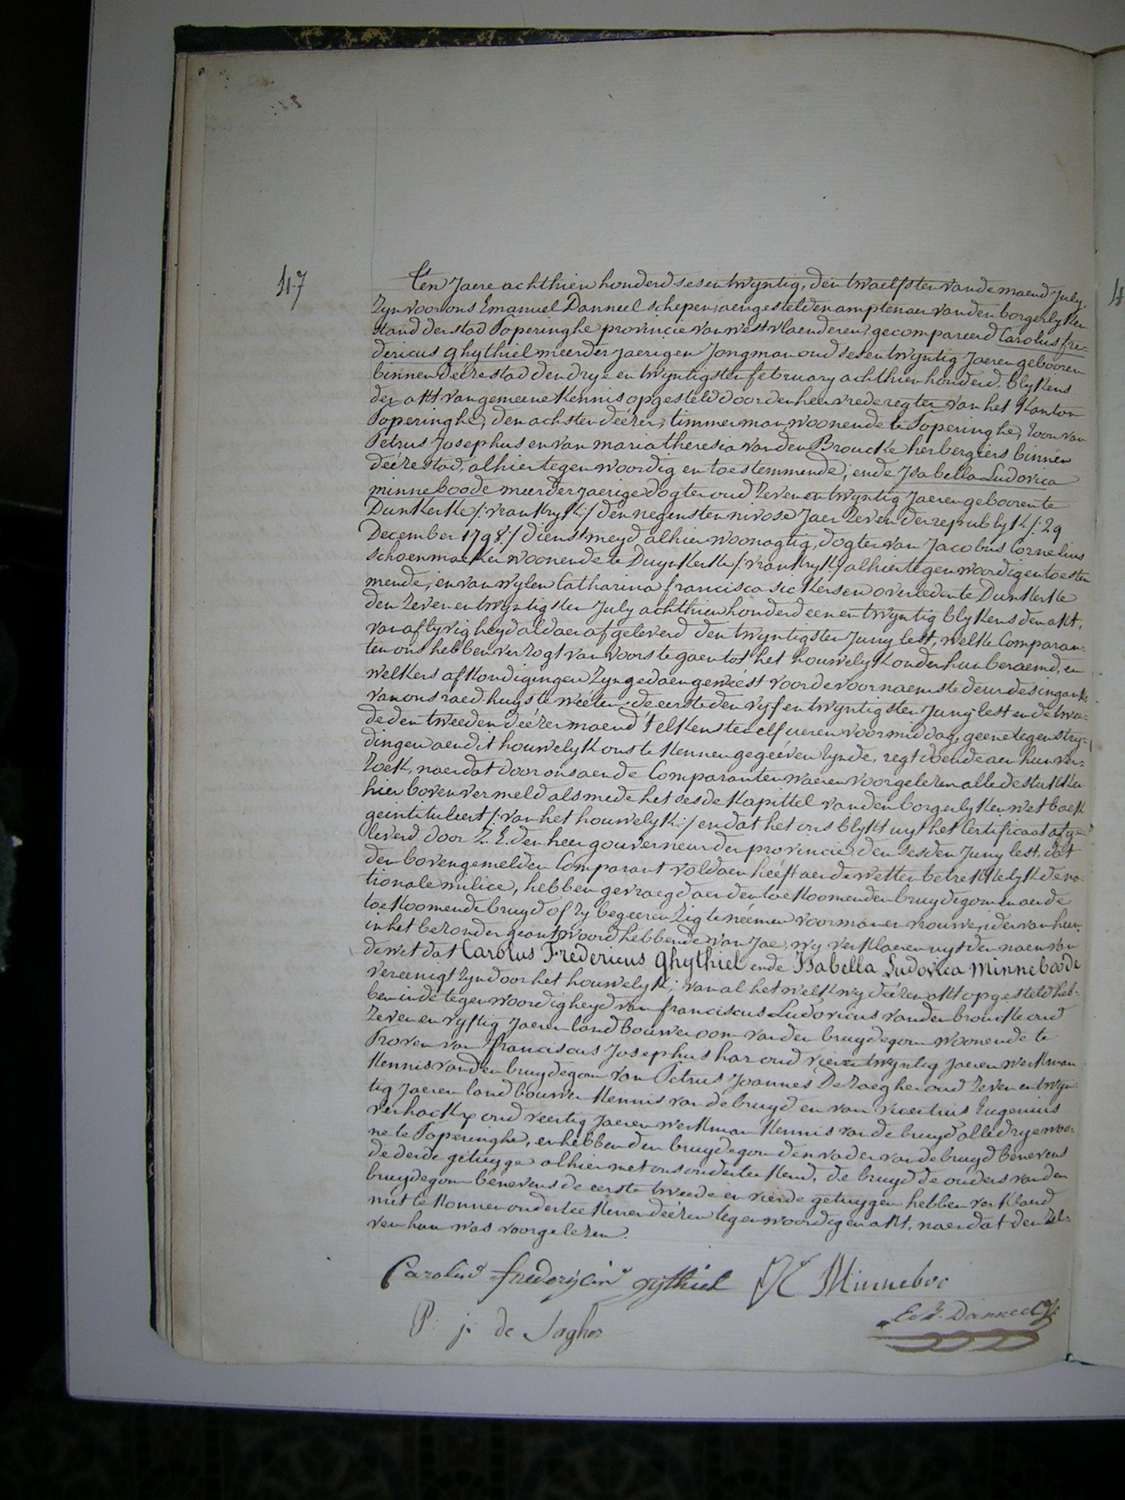 47
Ten Jaere achthien honderd sesentwyntig, den twaelfsten van de maend July
Zyn voor ons Emanuel Danneel schepen, aengestelden amptenaer van den borgerlyken
stand der stad Poperinghe provincie van westvlaenderen, gecompareerd Carolus fre-
dericus Ghythiel meerderjaerigen Jongman oud sesentwyntig Jaeren gebooren
binnen deéze stad den drye en twyntigsten february achthien honderd, blykens
den akt van gemeene kennis opgesteld door den heer vrederegter van het Kanton
Poperinghe, den achsten deézer, timmerman, woonende te Poperinghe, zoon van
Petrus Josephus en van maria theresia vanden Broucke herbergiers binnen
deéze stad, alhier tegenwoordig en toestemmende; ende Isabella Ludovica
minneboode meerderjaerige dogter oud zevenentwyntig Jaeren gebooren te
Dunkerke /: vrankryk :/ den negensten nivose Jaer zeven der republyk /: 29
December 1798 :/ dienstmeyd alhier woonagtig, dogter van Jacobus Cornelius
schoenmaeker woonende te Duynkerke /: vrankryk :/ alhier tegenwoordig en toestem
mende; en van wylen Catharina francisca sickersen overleden te Dunkerke
den zevenentwyntigsten July achthien honderd een en twyntig blykens den akt,
van aflyvigheyd aldaer afgeleverd den twyntigsten Juny lest, welke Comparan-
ten ons hebben verzogt van voorts te gaen tot het houwelyk onder hun beraemd, en
welkers afkondigingen zyn gedaen geweést voor de voornaemste deur des ingank
van ons raedhuys te weéten: de eerste den vyfentwyntigsten Juny lest ende twee-
de den tweeden deézer maend t'elkens ten elf ueren voormiddag, geene tegenstry-
dingen aen dit houwelyk ons te kennen gegeeven zynde, regt doende aen hun ver-
zoek, naerdat door ons aen de Comparanten waeren voorgelezen alle de stukken
hier boven vermeld als mede het sesde kapittel van den borgerlyken wetboek
geintituleert /: van het houwelyk :/ en dat het ons blykt uyt het Certificaat afge-
leverd door Z. E. den heer gouverneur der provincie den sesden Juny lest, dat
den bovengemelden Comparant voldaen heéft aen de wetten betrekkelyk de na-
tionale milice, hebben gevraegd aen den toekoomenden bruydegom en aen de
toekoomende bruyd of zy begeeren zig te neémen voor man en vrouwe, ider van hun
in het bezonder geantwoord hebbende van Jae, wy verklaeren uyt den naem van
de wet dat Carolus Fredericus Ghythiel ende Isabella Ludovica Minneboode
vereenigt zyn door het houwelyk; van al het welk wy deézen akt opgesteld heb-
ben in de tegenwoordigheyd van franciscus Ludovicus vanden broucke oud
zevenenvyftig Jaeren landbouwer oom van den bruydegom woonende te
Proven van franciscus Josephus har oud vierentwyntig Jaeren werkman
kennis van den bruydegom van Petrus Joannes De Zaegher oud zevenentwyn-
tig Jaeren landbouwer kennis van de bruyd en van Eugenius
verhack oud veertig Jaeren werkman kennis van de bruyd alle drye woo-
ne te Poperinghe, en hebben den bruydegom den vader van de bruyd benevens
de derde getuyge alhier met ons onderteekend, de bruyd de ouders van den
bruydegom benevens de eerste tweede en vierde getuygen hebben verklaerd
niet te konnen onderteekenen deézen tegenwoordigen akt, naerdat den zel-
ven hun was voorgelezen.
Carolus frederycus gythiel Minneboo
P: j: de Sagher Em. Danneel